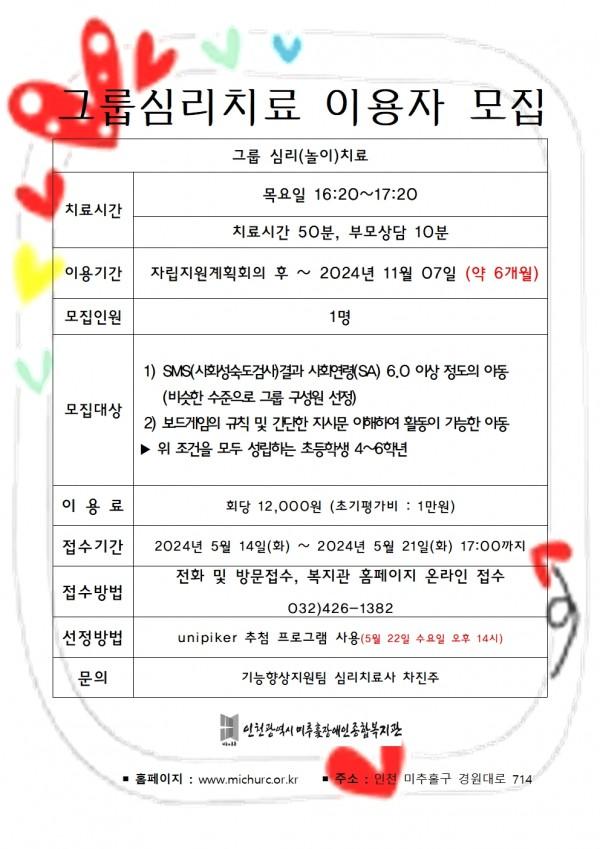 그룹심리치료 이용자 모집
그룹 심리(놀이)치료
치료시간
목요일 16:20~17:20
치료시간 50분, 부모상담 10분
이용기간
자립지원계획회의 후 ~ 2024년 11월 07일 (약 6개월)
모집인원
1명
모집대상
1) SMS(사회성숙도검사)결과 사회연령(SA) 6.0 이상 정도의 아동
(비슷한 수준으로 그룹 구성원 선정)
2) 보드게임의 규칙 및 간단한 지시문 이해하여 활동이 가능한 아동
▶ 위 조건을 모두 성립하는 초등학생 4~6학년
이 용 료
회당 12,000원 (초기평가비 : 1만원)
접수기간
2024년 5월 14일(화) ~ 2024년 5월 21일(화) 17:00까지
접수방법
전화 및 방문접수, 복지관 홈페이지 온라인 접수
032)426-1382
선정방법
unipiker 추첨 프로그램 사용(5월 22일 수요일 오후 14시)
문의
기능향상지원팀 심리치료사 차진주
인천광역시미추홀장애인종합복지관
▪ 홈페이지 : www.michurc.or.kr ▪ 주소 : 인천 미추홀구 경원대로 714